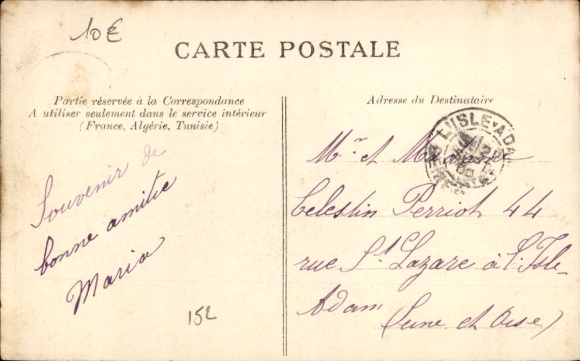 10€
CARTE POSTALE
Partie réservée à la Correspondance
A utiliser seulement dans le service intérieur
(France, Algérie, Tunisie)
Adresse du Destinataire
Souvenir de
bonne amitie
Maria
152
L'ISLE-ADAM
Mr et Madame
Celestin Perriot 44
rue St Lazare à l'Isle-
Adam
(Seine et Oise)